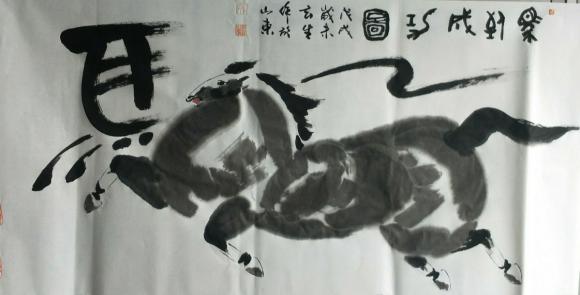 馬到成功圖
戊戌
歲末
玄生
作於
山東